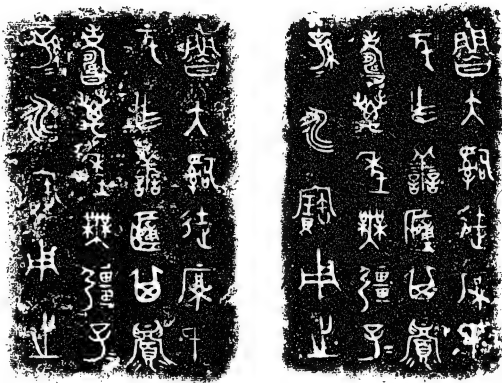 魯大嗣徒厚氏
元乍善簠其眉
壽萬年無彊子
孫永寶用之
魯大嗣徒厚氏
元乍善簠其眉
壽萬年無彊子
孫永寶用之